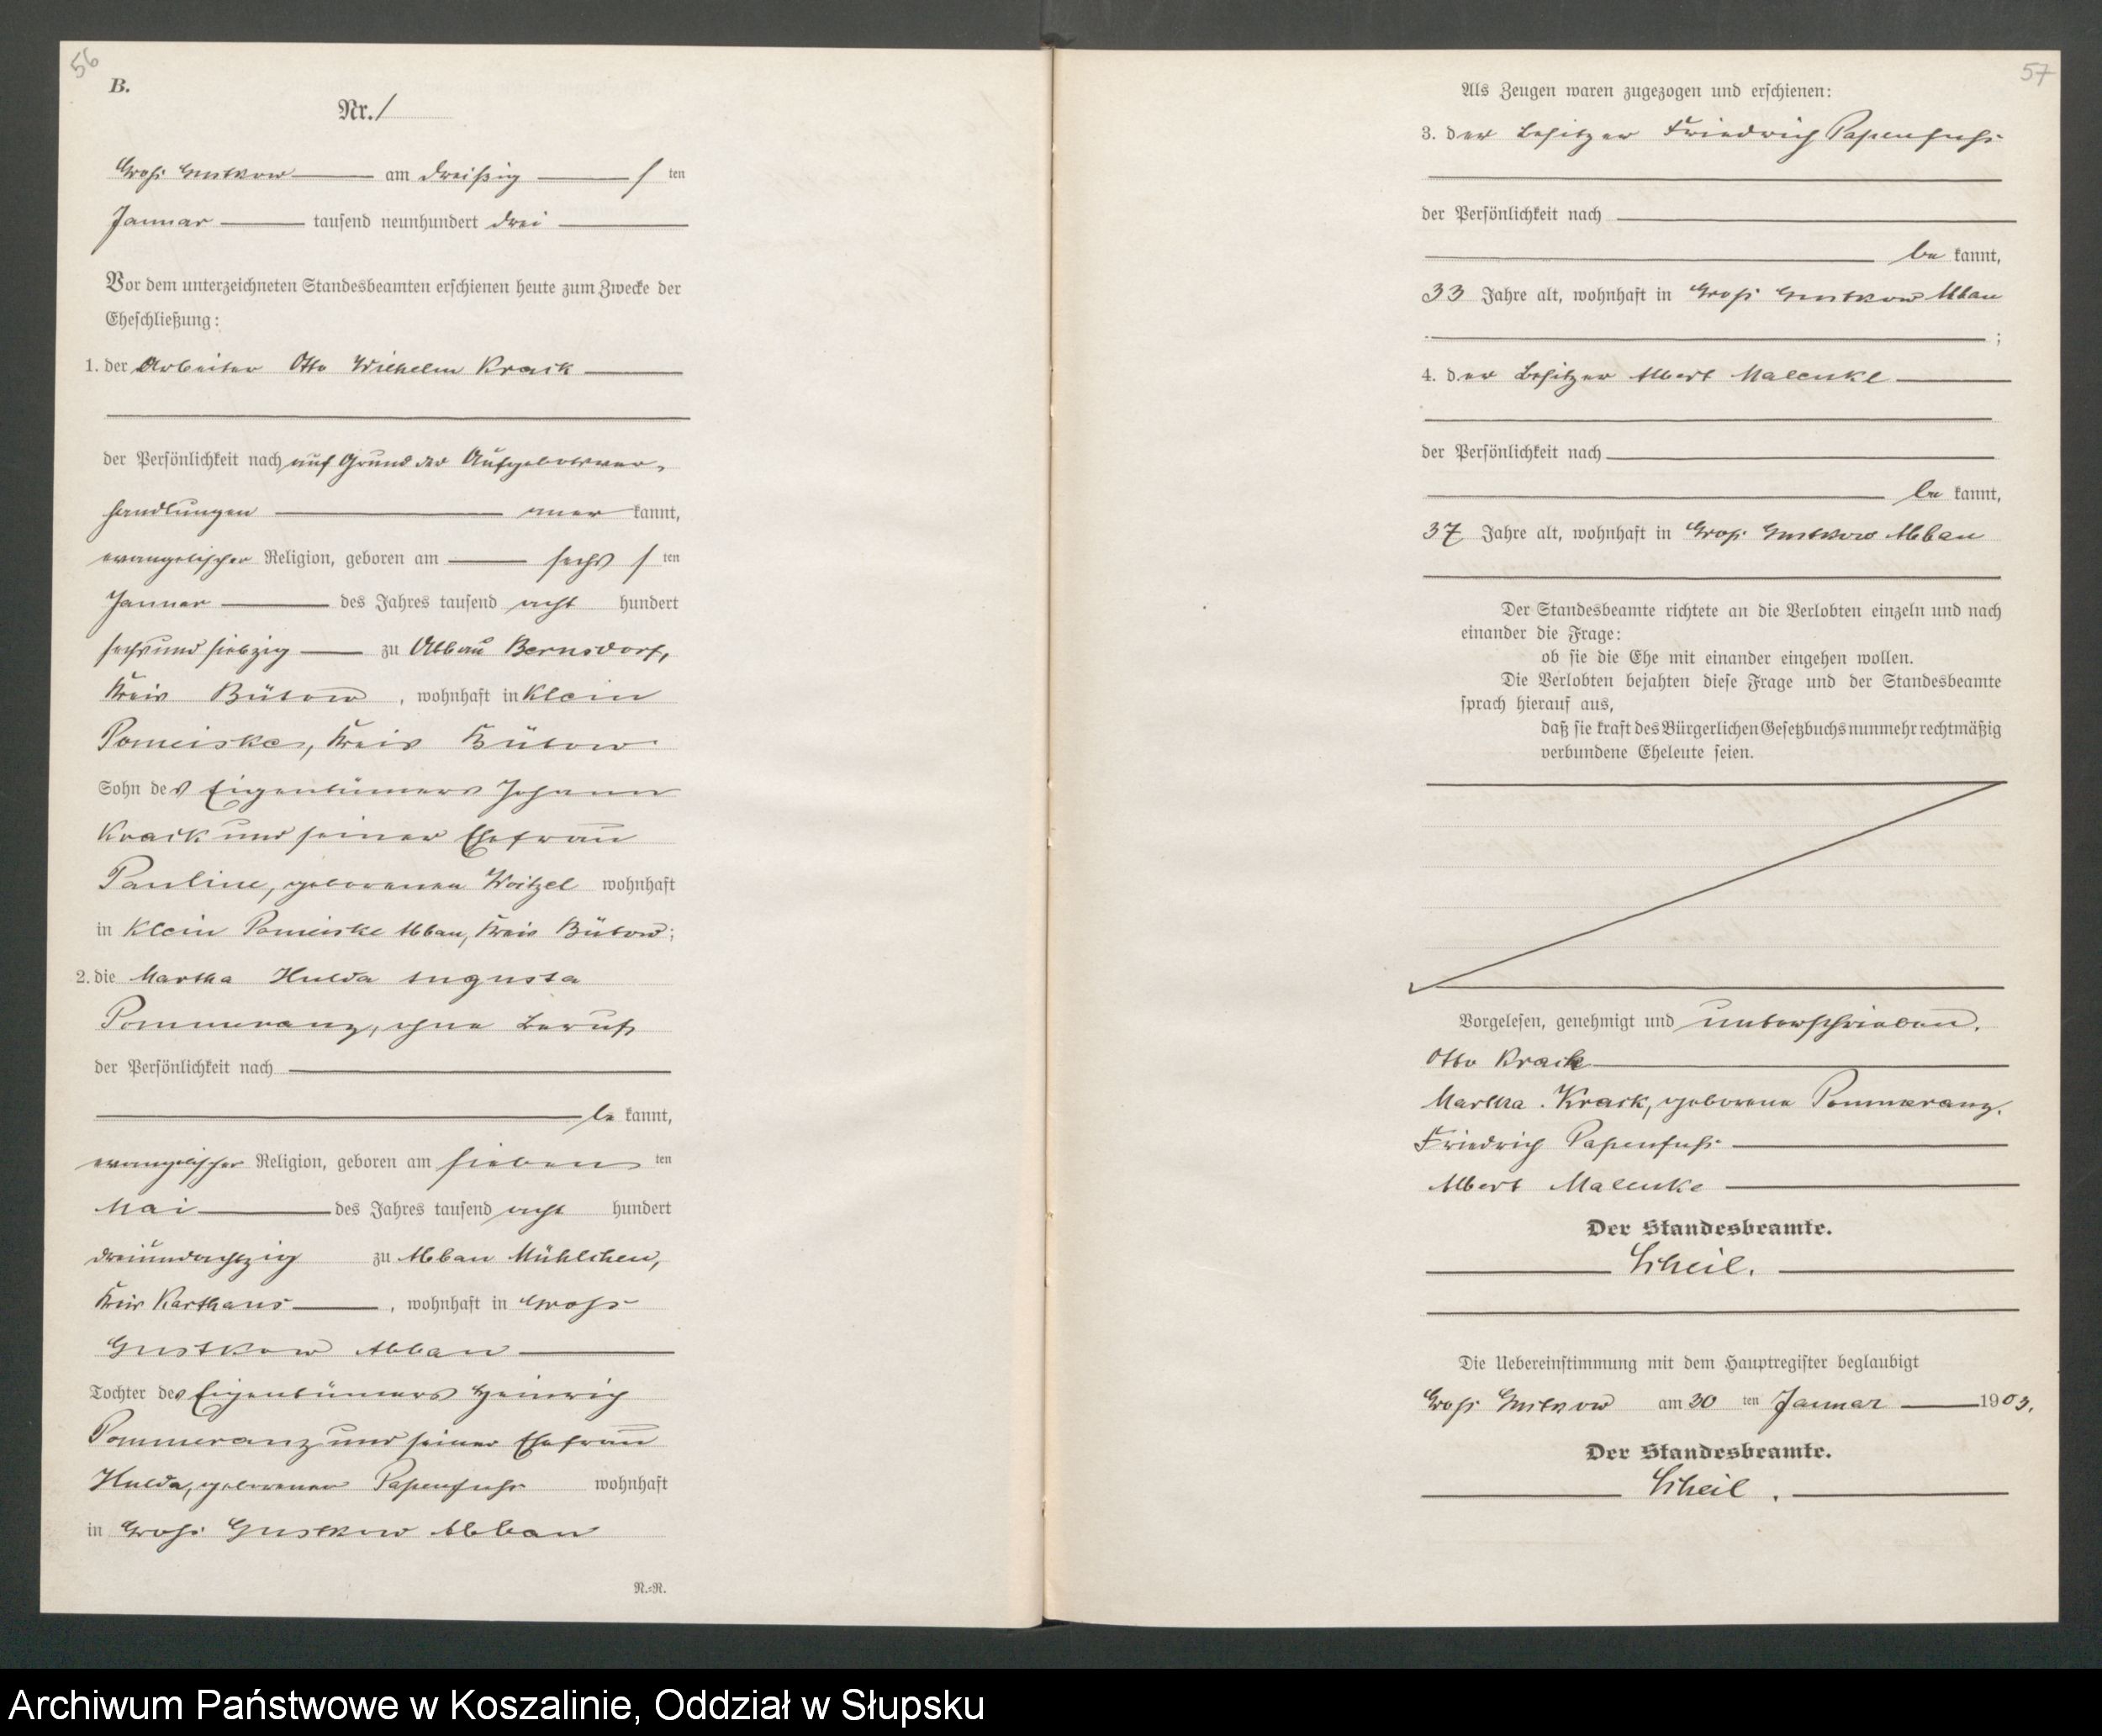 56
B.
Nr. 1
Groß Gustkow am dreißigsten
Januar tausend neunhundert drei
Vor dem unterzeichneten Standesbeamten erschienen heute zum Zwecke der
Eheschließung:
1. der Arbeiter Otto Wilhelm Krack
der Persönlichkeit nach auf Grund der Aufgebotsver-
handlungen aner kannt,
evangelischer Religion, geboren am sechs ten
Januar des Jahres tausend acht hundert
sechsundsiebzig zu Abbau Bernsdorf,
Kreis Bütow, wohnhaft in Klein
Pomeiske, Kreis Bütow
Sohn des Eigentümers Johann
Krack und seiner Ehefrau
Pauline, geborenen Woitzel wohnhaft
in Klein Pomeiske Abbau, Kreis Bütow;
2. die Martha Hulda Augusta
Pommeranz, ohne Beruf
der Persönlichkeit nach
be kannt,
evangelischer Religion, geboren am sieben ten
Mai des Jahres tausend acht hundert
dreiundachtzig zu Abbau Mühlchen,
Kreis Karthaus, wohnhaft in Groß
Gustkow Abbau
Tochter des Eigentümers Heinrich
Pommeranz und seiner Ehefrau
Hulda, geborenen Papenfuhs wohnhaft
in Groß Gustkow Abbau
N.-R.
57
Als Zeugen waren zugezogen und erschienen:
3. der Besitzer Friedrich Papenfuhs
der Persönlichkeit nach
be kannt,
33 Jahre alt, wohnhaft in Groß Gustkow Abbau
;
4. der Besitzer Albert Malenke
der Persönlichkeit nach
be kannt,
37 Jahre alt, wohnhaft in Groß Gustkow Abbau
Der Standesbeamte richtete an die Verlobten einzeln und nach
einander die Frage:
ob sie die Ehe mit einander eingehen wollen.
Die Verlobten bejahten diese Frage und der Standesbeamte
sprach hierauf aus,
daß sie kraft des Bürgerlichen Gesetzbuchs nunmehr rechtmäßig
verbundene Eheleute seien.
Vorgelesen, genehmigt und unterschrieben.
Otto Krack
Martha Krack, geborene Pommeranz.
Friedrich Papenfuhs
Albert Malenke
Der Standesbeamte.
Scheil.
Die Uebereinstimmung mit dem Hauptregister beglaubigt
Groß Gustkow am 30 ten Januar 1903.
Der Standesbeamte.
Scheil.
Archiwum Państwowe w Koszalinie, Oddział w Słupsku